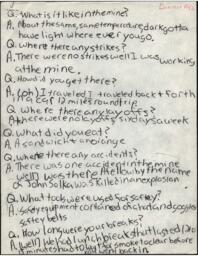 Q. What is it like in the mine?
A. About the same, same temperature, dark gotta
have light where ever you go.
Q. Where there any strikes?
A. There were no strikes well I was working
at the mine.
Q. How did you get there?
A. (oh) I traveled I traveled back + forth
in a car 12 miles round trip
Q. Where there any lay offs?
A. there were no lay offs six days a week
Q. What did you eat?
A. A sandwich + an orange
Q. Where there any accidents?
A. There was one accident in the mine
well I was there. A fellow by the name
of John Solka was killed in an explosion
Q. What tools were used for saftey?
A. safty equipment contained of a hat and goggles
saftey belts
Q. How long were your breaks?
A. (Well) we had lunch break that lasted 30
minutes had to by let smoke to clear before
you went back in